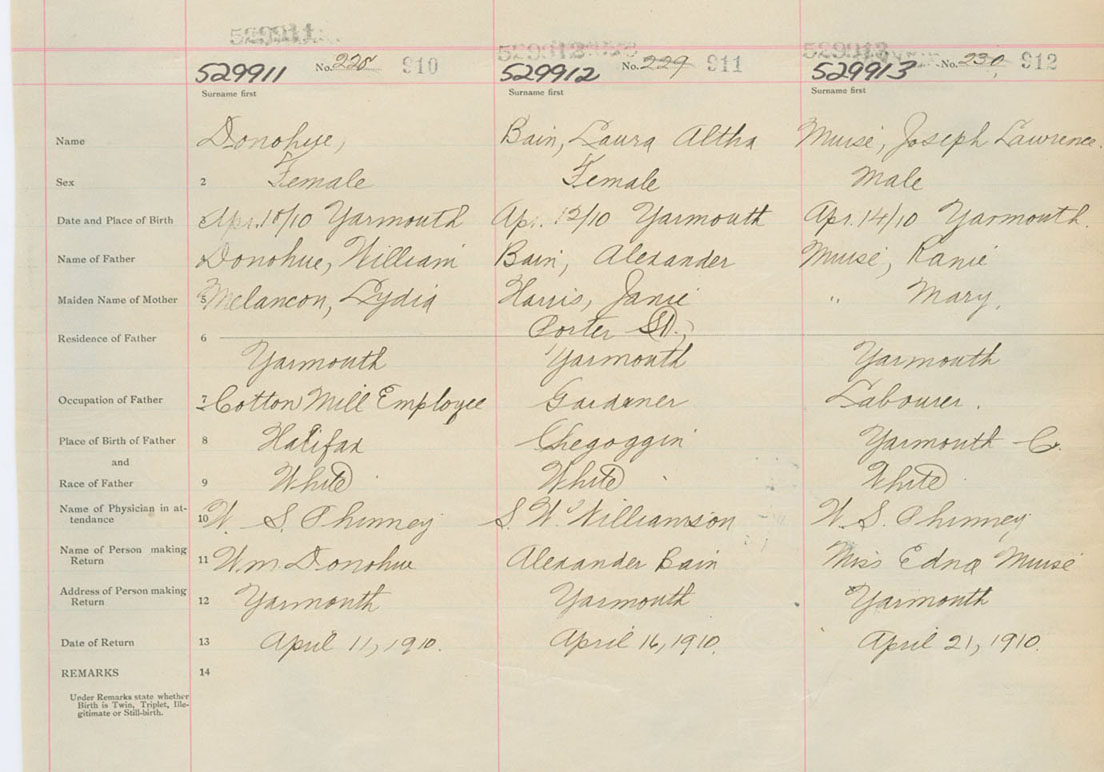 529911 529912 529913
529911 No. 228 910 529912 No. 229 911 529913 No. 230 912
Surname first Surname first Surname first
Name Donohue, Bain, Laura Altha Muise, Joseph Lawrence.
Sex 2 Female Female Male
Date and Place of Birth 3 Apr. 10/10 Yarmouth Apr. 12/10 Yarmouth Apr. 14/10 Yarmouth.
Name of Father 4 Donohue, William Bain, Alexander Muise, Ranie
Maiden Name of Mother 5 Melancon, Lydia Harris, Janie " Mary.
Porter St.,
Residence of Father 6
Yarmouth Yarmouth Yarmouth
Occupation of Father 7 Cotton Mill Employee Gardener Labourer.
Place of Birth of Father 8 Halifax Chegoggin Yarmouth Co.
and
Race of Father 9 White White White
Name of Physician in at-
tendance 10 W. S. Phinney S. W. Williamson W. S. Phinney
Name of Person making
Return 11 Wm Donohue Alexander Bain Miss Edna Muise
Address of Person making
Return 12 Yarmouth Yarmouth Yarmouth
Date of Return 13 April 11, 1910. April 16, 1910. April 21, 1910.
REMARKS 14
Under Remarks state whether
Birth is Twin, Triplet, Ille-
gitimate or Still-birth.